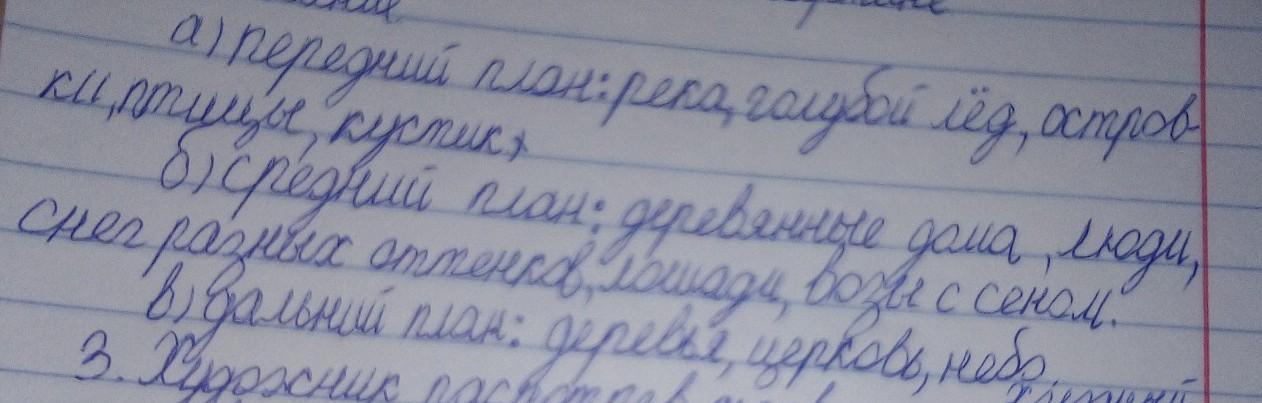 а) передний план: река, голубой лёд, остров-
ки, птицы, кустик,
б) средний план: деревянные дома, люди,
снег разных оттенков, лошади, возы с сеном.
в) дальний план: деревья, церковь, небо.
3. Художник